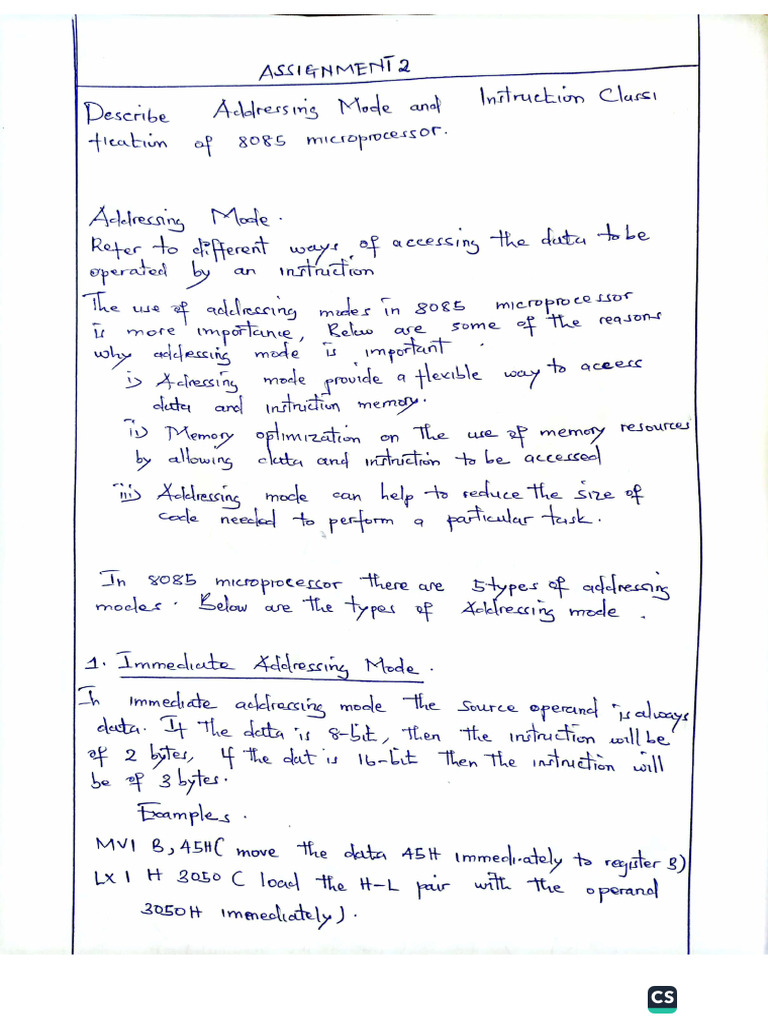 ASSIGNMENT 2
Describe Addressing Mode and Instruction Classi
fication of 8085 microprocessor.
Addressing Mode.
Refer to different ways of accessing the data to be
operated by an instruction
The use of addressing modes in 8085 microprocessor
is more importance, Below are some of the reasons
why addressing mode is important.
i) Adressing mode provide a flexible way to access
data and instruction memory.
ii) Memory optimization on the use of memory resources
by allowing data and instruction to be accessed
iii) Addressing mode can help to reduce the size of
code needed to perform a particular task.
In 8085 microprocessor there are 5 types of addressing
modes. Below are the types of Addressing mode.
1. Immediate Addressing Mode.
In immediate addressing mode the source operand is always
data. If the data is 8-bit, then the instruction will be
of 2 bytes, if the dat is 16-bit then the instruction will
be of 3 bytes.
Examples.
MVI B, 45H( move the data 45H immediately to register B)
LX I H 3050 ( load the H-L pair with the operand
3050H immediately).
CS